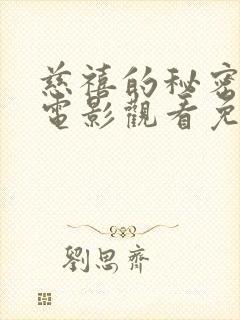 慈禧的秘密
電影觀看免
劉思齊